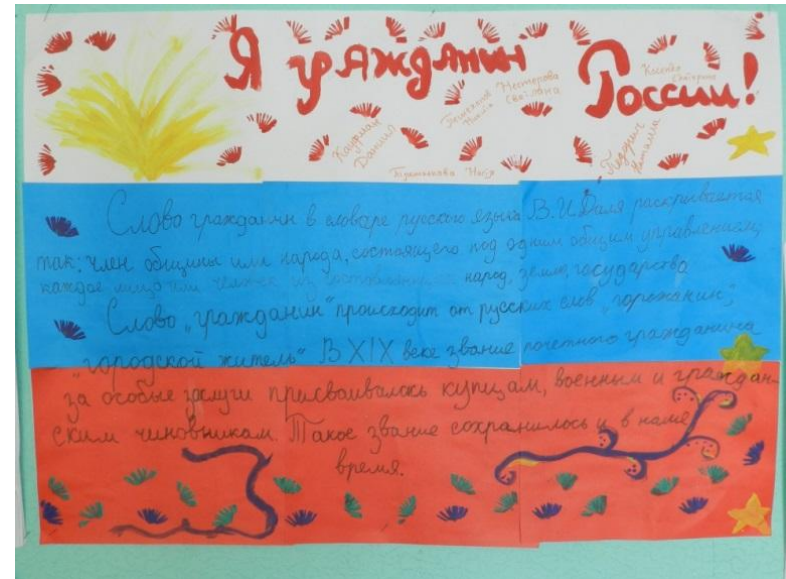 Я гражданин России!
Нестерова
Светлана
Кауфман
Даниил
Наталия
Слово гражданин в словаре русского языка В.И.Даля раскрывается
так: член общины или народа, состоящего под одним общим управлением;
каждое лицо или человек, из составляющих народ, землю, государство
Слово „гражданин" происходит от русских слов „горожанин",
„городской житель" В XIX веке звание почетного гражданина
за особые заслуги присваивалось купцам, военным и граждан-
ским чиновникам. Такое звание сохранилось и в наше
время.